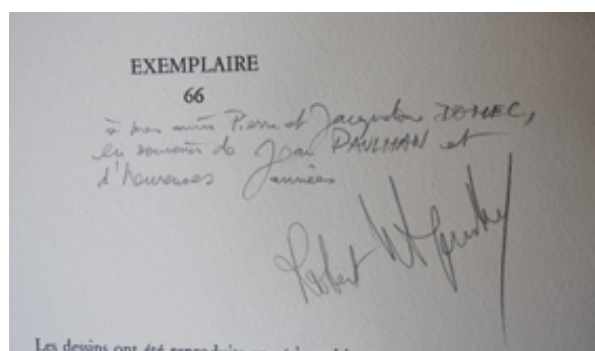 EXEMPLAIRE
66
à mes amis Pierre et Jacqueline DOMEC,
en souvenir de Jean PAULHAN et
d'heureuses années
Robert
Les dessins ont été reproduits